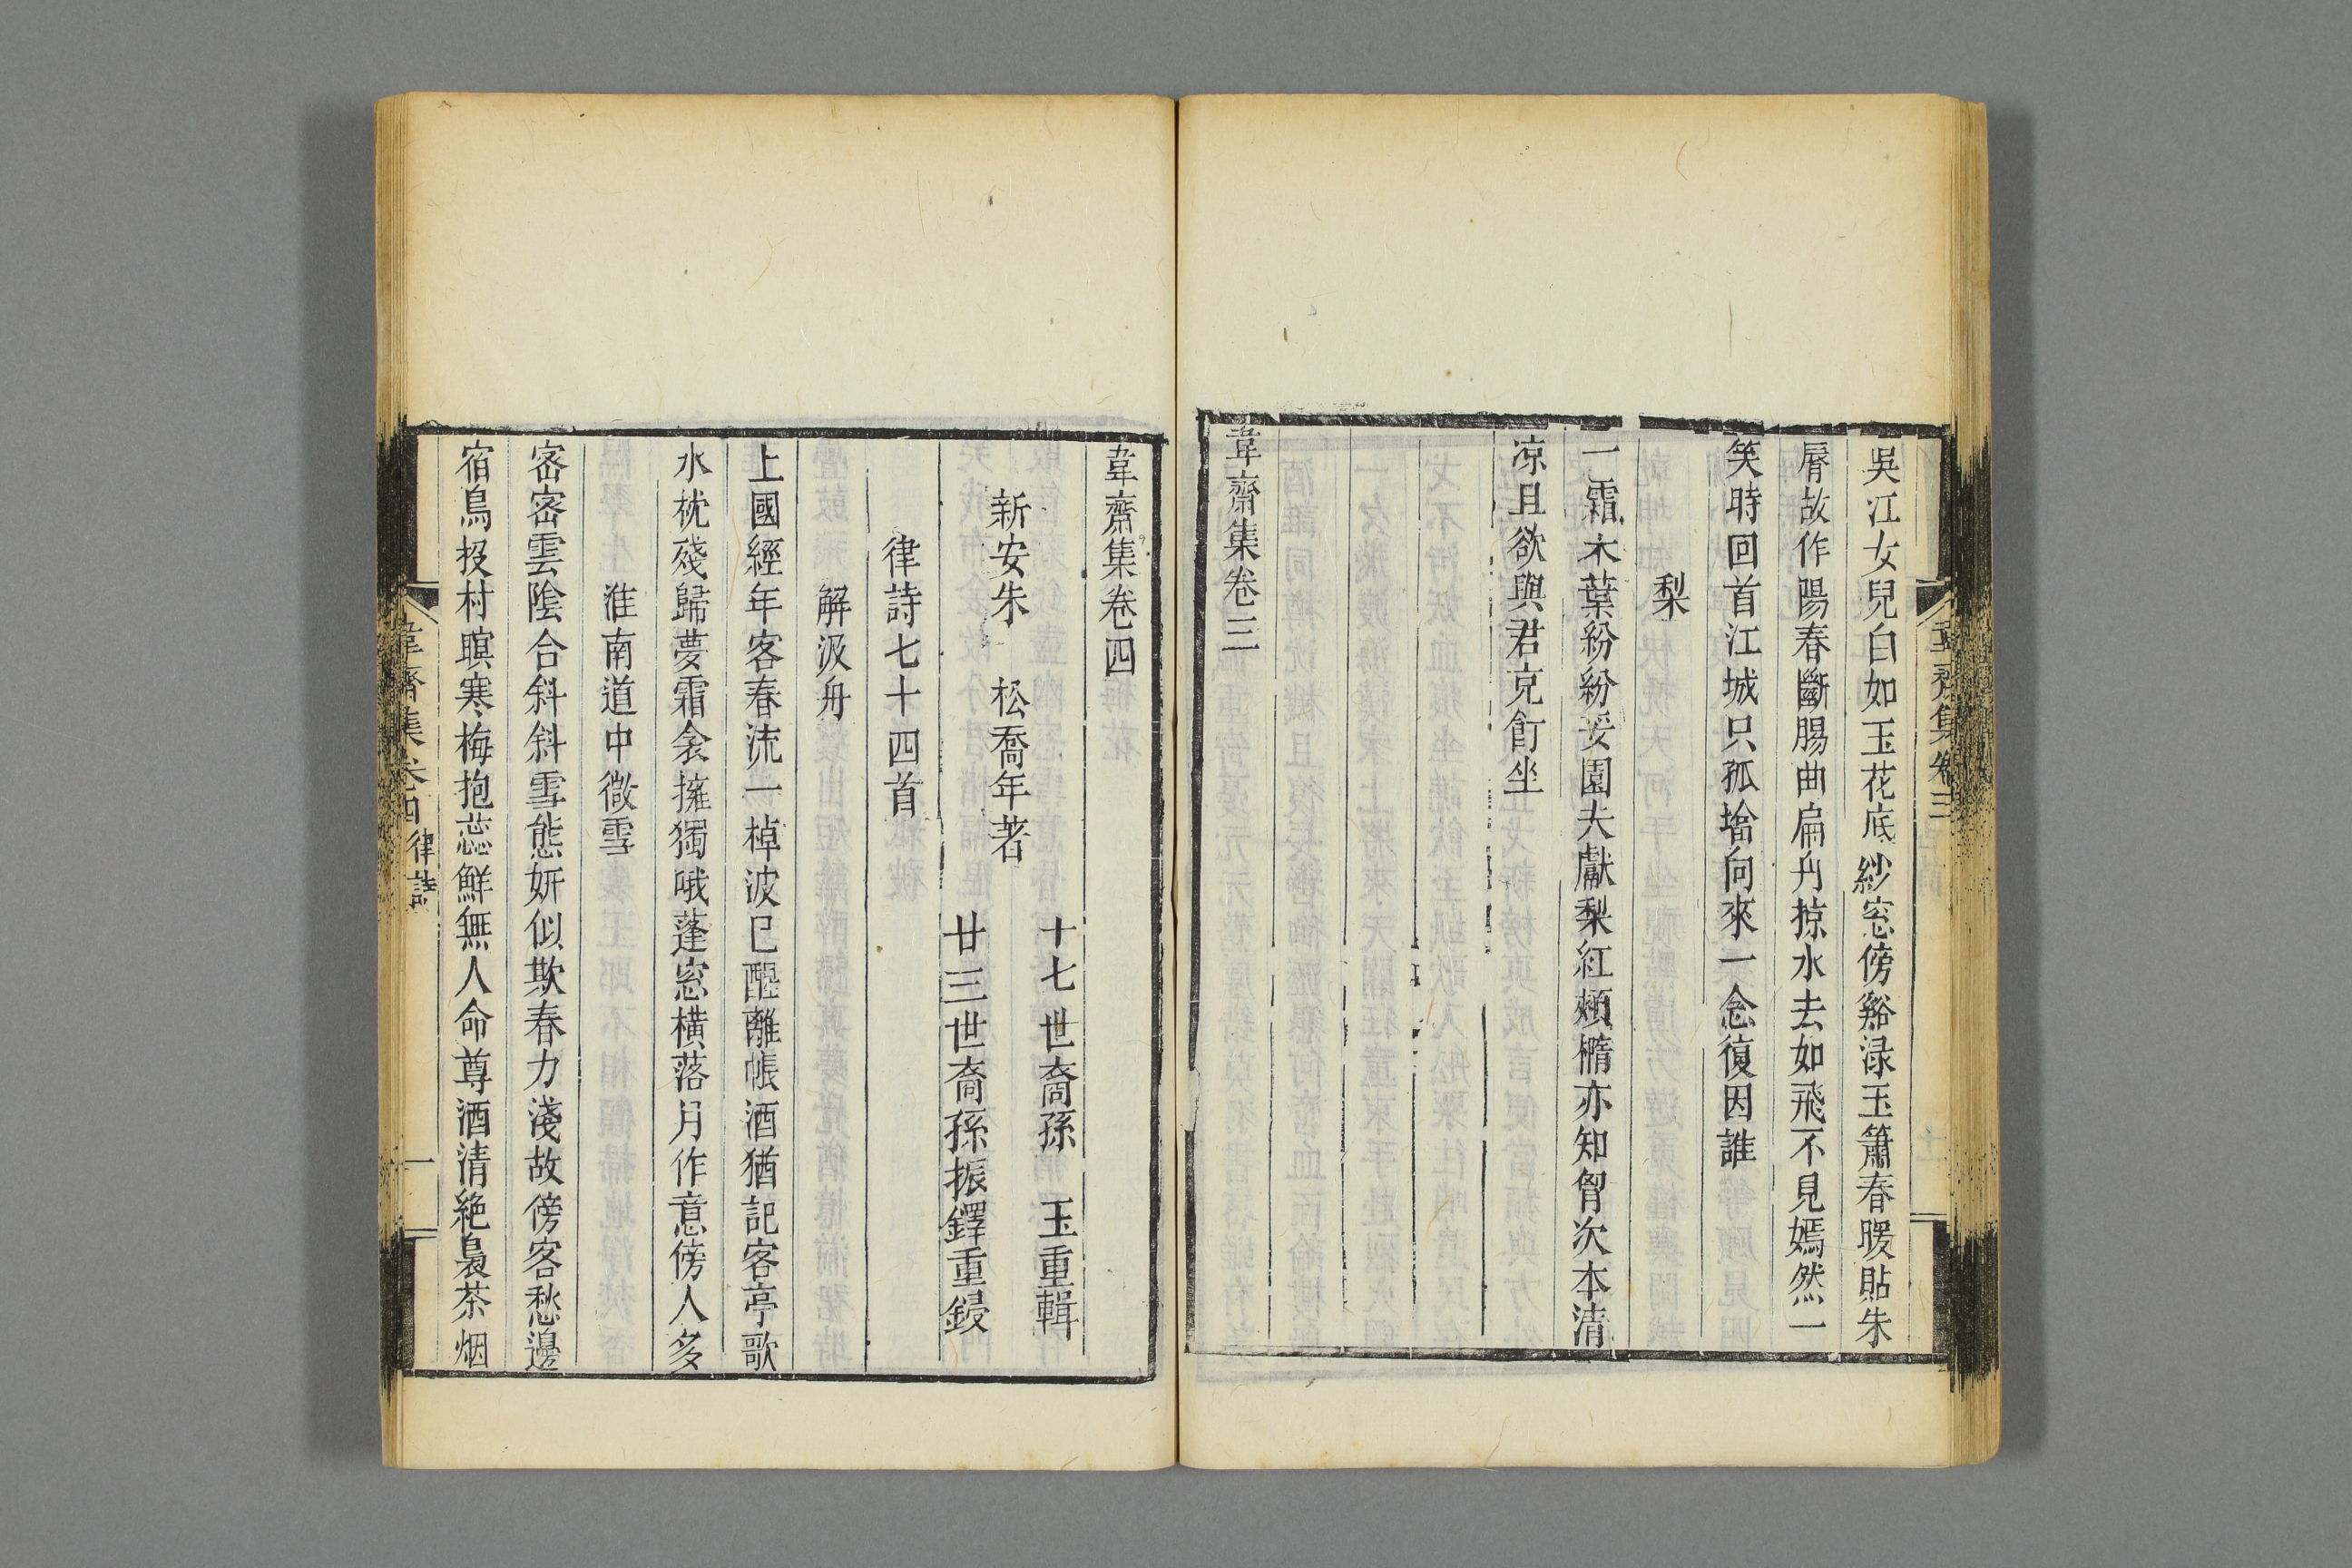 吳江女兒白如玉花底紗窓傍谿渌玉簫春暖貼朱
脣故作陽春斷腸曲扁舟掠水去如飛不見嫣然一
笑時回首江城只孤墖向來一念復因誰
梨
一霜木葉紛紛妥園夫獻梨紅頰橢亦知胷次本清
凉且欲與君充飣坐
韋齋集卷三
韋齋集卷三
韋齋集卷四
十七世裔孫 玉重輯
新安朱 松喬年著
廿三世裔孫振鐸重鋟
律詩七十四首
解汲舟
上國經年客春流一棹波已醒離帳酒猶記客亭歌
水枕殘歸夢霜衾擁獨哦蓬窓橫落月作意傍人多
淮南道中微雪
密密雲陰合斜斜雪態妍似欺春力淺故傍客愁邊
宿鳥投村暝寒梅抱蕊鮮無人命尊酒清絶裊茶烟
韋齋集卷四 律詩 一